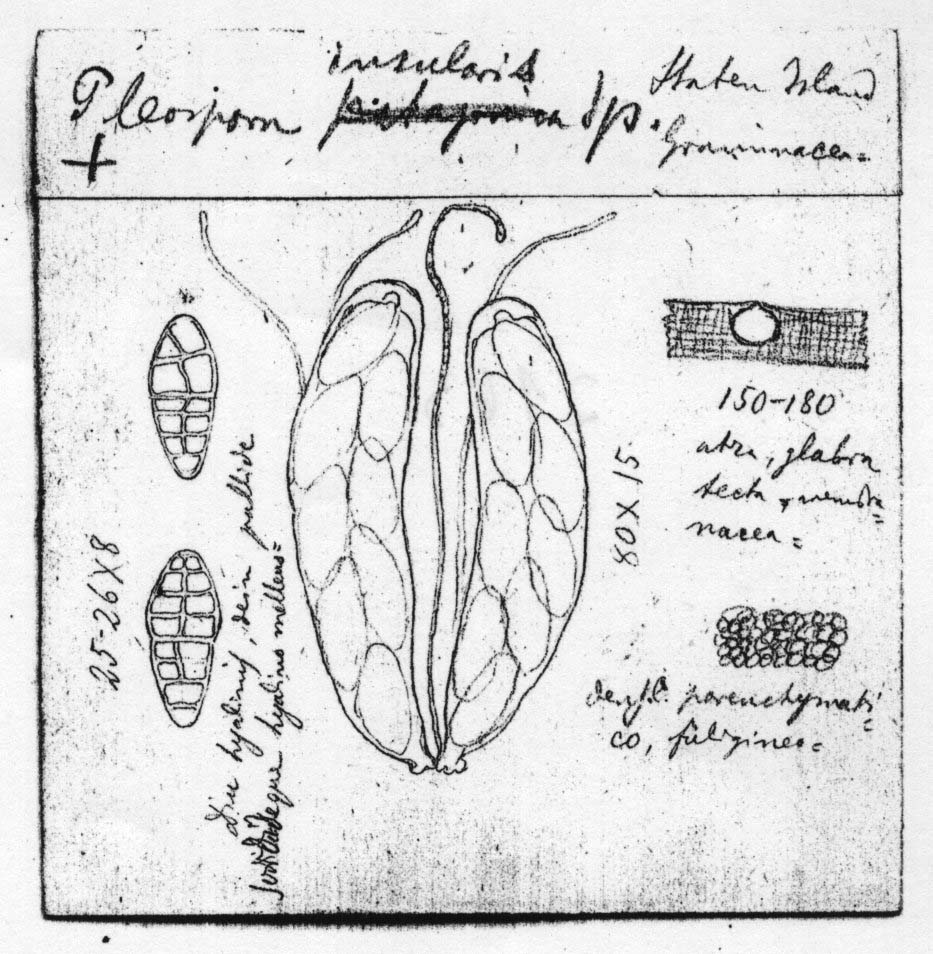 insularis
Pleospora Sp.
+
Staten Island
Graminacea=
150-180
atra, glabra
tecta, membra=
nacea=
80 X 15
25-26 X 8
Diu hyalinis, dein pallide
hyalinis mellens=
parenchymati=
co, fuligineo=